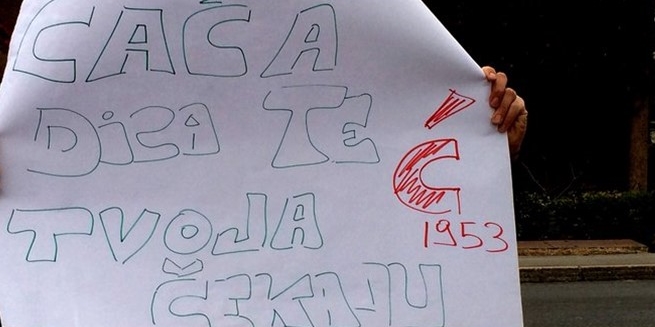 ĆAĆA
DICA TE
TVOJA
ČEKAJU
Ć
1953